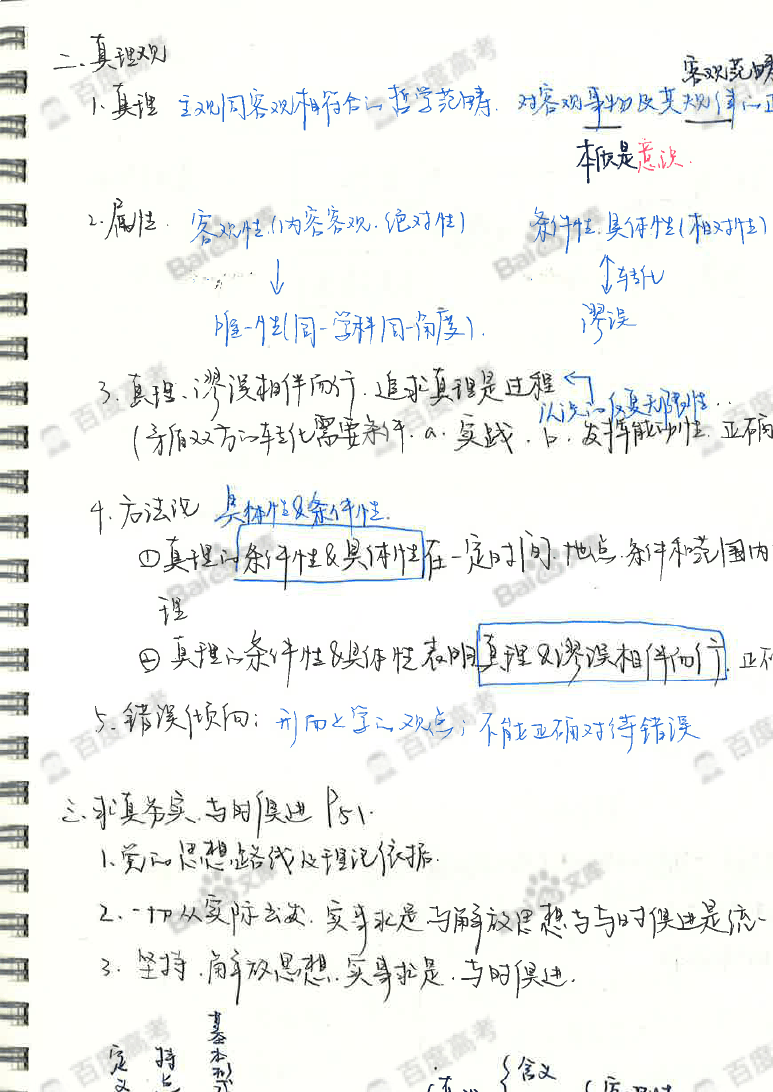 二、真理观
客观范畴
1. 真理 主观同客观相符合的哲学范畴. 对客观事物及其规律的正
本质是意识.
2. 属性. 客观性.(内容客观.绝对性) 条件性.具体性(相对性)
↓ ↕转化
唯一性(同一学科同一角度). 谬误
3. 真理、谬误相伴而行. 追求真理是过程
认识的反复无限性..
(矛盾双方的转化需要条件. a. 实践. b. 发挥能动性. 正确
4. 方法论 具体性&条件性.
①真理的条件性&具体性在一定时间.地点.条件和范围内
理
②真理的条件性&具体性表明真理&谬误相伴而行. 正确
5. 错误倾向: 形而上学的观点; 不能正确对待错误
三.求真务实、与时俱进 P51.
1. 党的思想路线及理论依据.
2. 一切从实际出发. 实事求是与解放思想与与时俱进是统一
3. 坚持.解放思想.实事求是.与时俱进.
定义 特点 基本形
含义
百度高考
Baidu文库